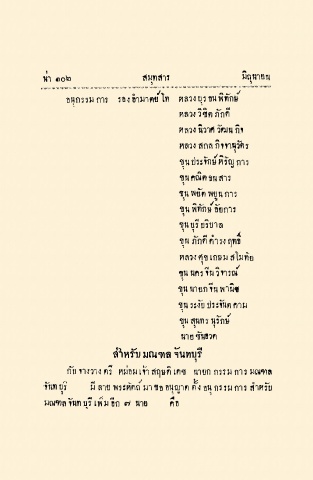 น่า ๑๐๒ สมุทสาร มิถุนายน
อนุกรรมการ รองอำมาตย์โท หลวง ธุร ชน พิทักษ์
หลวง วิชิต ภักดี
หลวง นิวาศ วัฒน กิจ
หลวง สกล กิจจานุวัตร
ขุน ประจักษ์ หิรัญ การ
ขุน คณิต ชน สาร
ขุน พยัต พยูน การ
ขุน พิทักษ์ อัยการ
ขุน บุรี อริบาล
ขุน ภักดี ดำรงฤทธิ์
หลวง ศุข เกษม สโมทัย
ขุน นคร จีน วิจารณ์
ขุน นายก จีน พานิช
ขุน ระงับ ประจันต คาม
ขุน สุนทร นุรักษ์
นาย
สำหรับ มณฑล จันทบุรี
กับ จางวาง ตรี หม่อมเจ้า สฤษดิเดช นายก กรรมการ มณฑล
จันทบุรี มี ลาย พระหัดถ์ มา ขอ อนุญาต ตั้ง อนุกรรมการ สำหรับ
มณฑล จันทบุรี เพิ่ม อีก ๗ นาย คือ